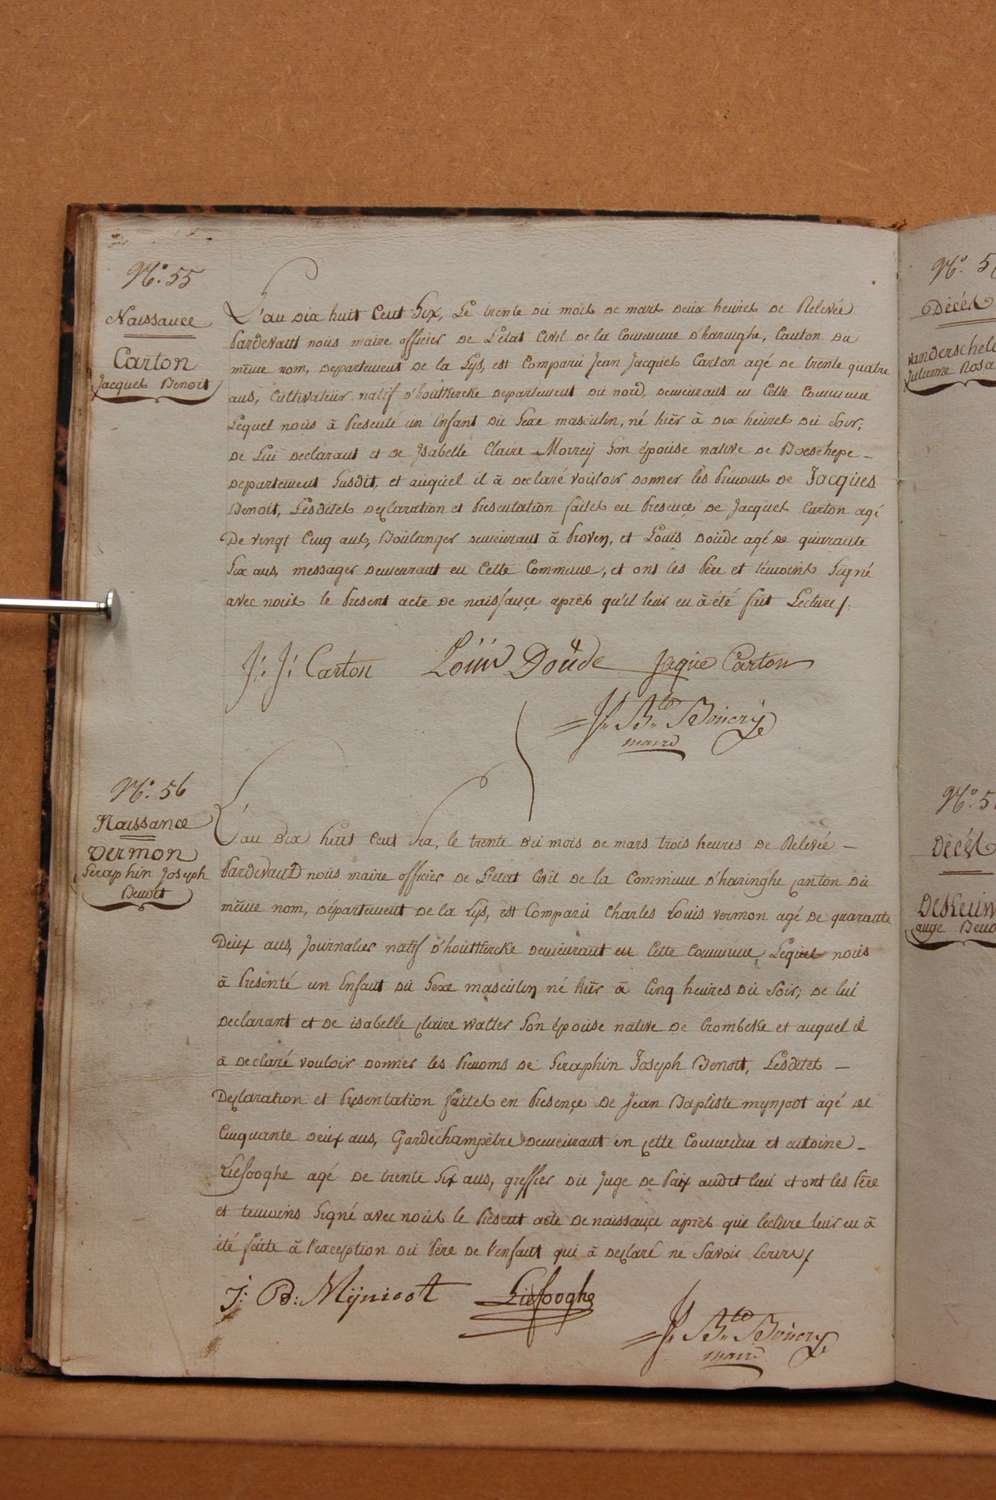 N.° 55
Naissance
Carton
Jacques Benoit
L'an dix huit Cent Six, Le trente du mois de mars deux heures de Relevée
Pardevant nous maire officier de L'état Civil de la Commune d'haringhe, Canton du
même nom, Departement de la Lys, est Comparu Jean Jacques Carton agé de trente quatre
ans, Cultivateur natif d'houtkercke departement du nord, demeurant en Cette Commune
Lequel nous à Presenté un Enfant du Sexe masculin, né hier à dix heures du Soir,
de Lui declarant et de Isabelle Claire Morrey Son épouse native de Boeschepe _
departement Susdit, et auquel il à declaré vouloir donner les Prenoms de Jacques
Benoit, Lesdites declaration et Presentation faites en Presence de Jacques Carton agé
De vingt Cinq ans, Boulanger demeurant à Proven, et Louis Doude agé de quarante
Six ans, messager demeurant en Cette Commune, et ont les Père et témoins Signé
avec nous le Present acte de naissance après qu'il leur en à été fait Lecture /.
J: J: Carton Louis Doude Jaque Carton
J. Bte Bouery
maire
N.° 56
Naissance
Vermon
Seraphin Joseph
Benoit
L'an Dix huit Cent Six, le trente du mois de mars trois heures de Relevée _
Pardevant nous maire officier de L'etat Civil de la Commune d'haringhe Canton du
même nom, département de la Lys, est Comparu Charles Louis Vermon agé de quarante
Deux ans, Journalier natif d'houtkercke demeurant en Cette Commune, Lequel nous
à Presenté un Enfant du Sexe masculin né hier à Cinq heures du Soir; de lui
declarant et de isabelle Claire Walter Son épouse native de Crombeke et auquel il
à declaré vouloir donner les Prenoms de Seraphin Joseph Benoit, Lesdites _
Declaration et Presentation faites en Presençe de Jean Baptiste mynsoot agé de
Cinquante deux ans, Gardechampêtre demeurant en Cette Commune et antoine _
Liefooghe agé de trente Six ans, greffier du Juge de Paix audit lieu et ont les Père
et temoins Signé avec nous le Present acte de naissançe après que lecture leur en à
été faite à l'exception du Père de l'enfant qui à declaré ne Savoir Ecrire /
J: B: Mijnsoot Liefooghe
J. Bte Bouery
maire
N.° 5
Décés
Vanderschele
Julienne Rosa
N.° 5
Décés
Deseuw
ange Beno